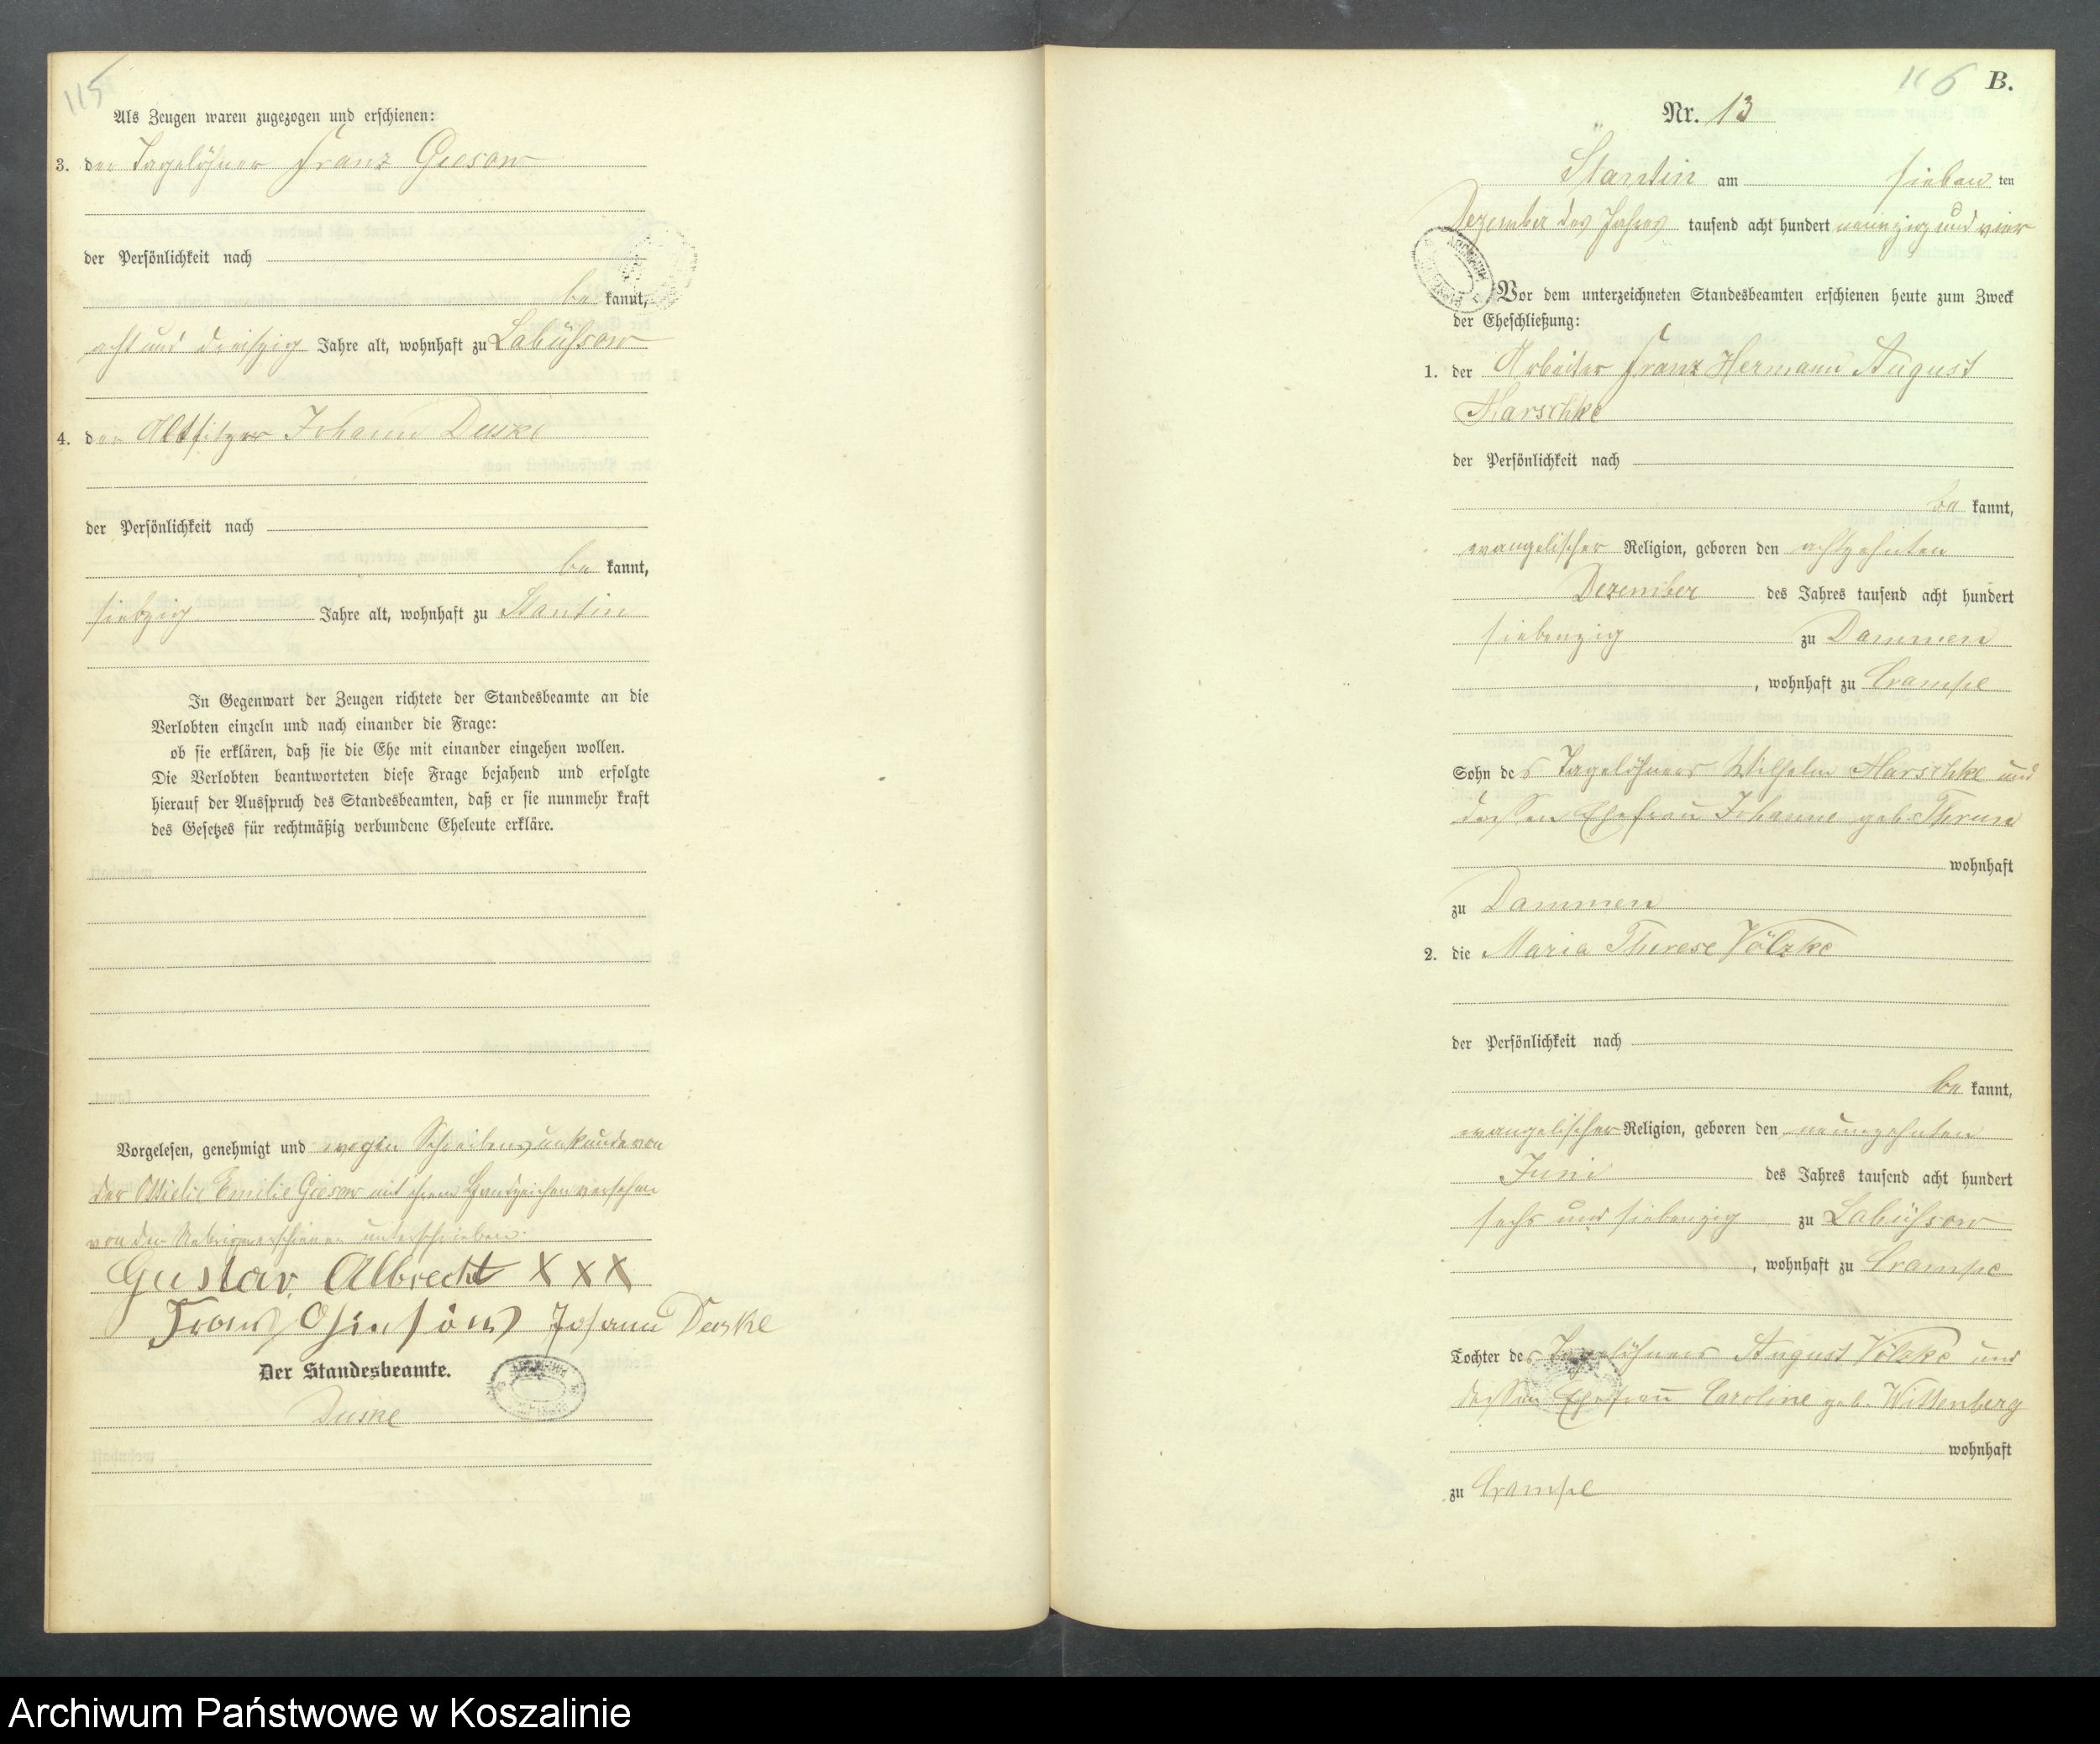 115
Als Zeugen waren zugezogen und erschienen:
3. der Tagelöhner Franz Giesow
der Persönlichkeit nach
be kannt,
acht und dreißig Jahre alt, wohnhaft zu Labüssow
4. der Altsitzer Johann Duske
der Persönlichkeit nach
be kannt,
siebzig Jahre alt, wohnhaft zu Stantin
In Gegenwart der Zeugen richtete der Standesbeamte an die
Verlobten einzeln und nach einander die Frage:
ob sie erklären, daß sie die Ehe mit einander eingehen wollen.
Die Verlobten beantworteten diese Frage bejahend und erfolgte
hierauf der Ausspruch des Standesbeamten, daß er sie nunmehr kraft
des Gesetzes für rechtmäßig verbundene Eheleute erkläre.
Vorgelesen, genehmigt und wegen Schreibensunkunde von
der Ottielie Emilie Giesow mit ihrem Handzeichen versehen
von den unterschrieben.
Gustav Albrecht X X X
Johann Duske
Der Standesbeamte.
Duske
116 B.
Nr. 13
Stantin am sieben ten
Dezember des Jahres tausend acht hundert neunzig und vier
Vor dem unterzeichneten Standesbeamten erschienen heute zum Zweck
der Eheschließung:
1. der Arbeiter Franz Hermann August
Harschke
der Persönlichkeit nach
be kannt,
evangelischer Religion, geboren den achtzehnten
Dezember des Jahres tausend acht hundert
siebenzig zu Dammen
, wohnhaft zu Crampe
Sohn des Tagelöhners Wilhelm Harschke und
dessen Ehefrau Johanne geb. Thrun
wohnhaft
zu Dammen
2. die Maria Therese Völzke
der Persönlichkeit nach
be kannt,
evangelischer Religion, geboren den neunzehnten
Juni des Jahres tausend acht hundert
sechs und siebenzig zu Labüssow
, wohnhaft zu Crampe
Tochter des Tagelöhners August Völzke und
dessen Ehefrau Caroline geb. Wittenberg
wohnhaft
zu Crampe
Archiwum Państwowe w Koszalinie